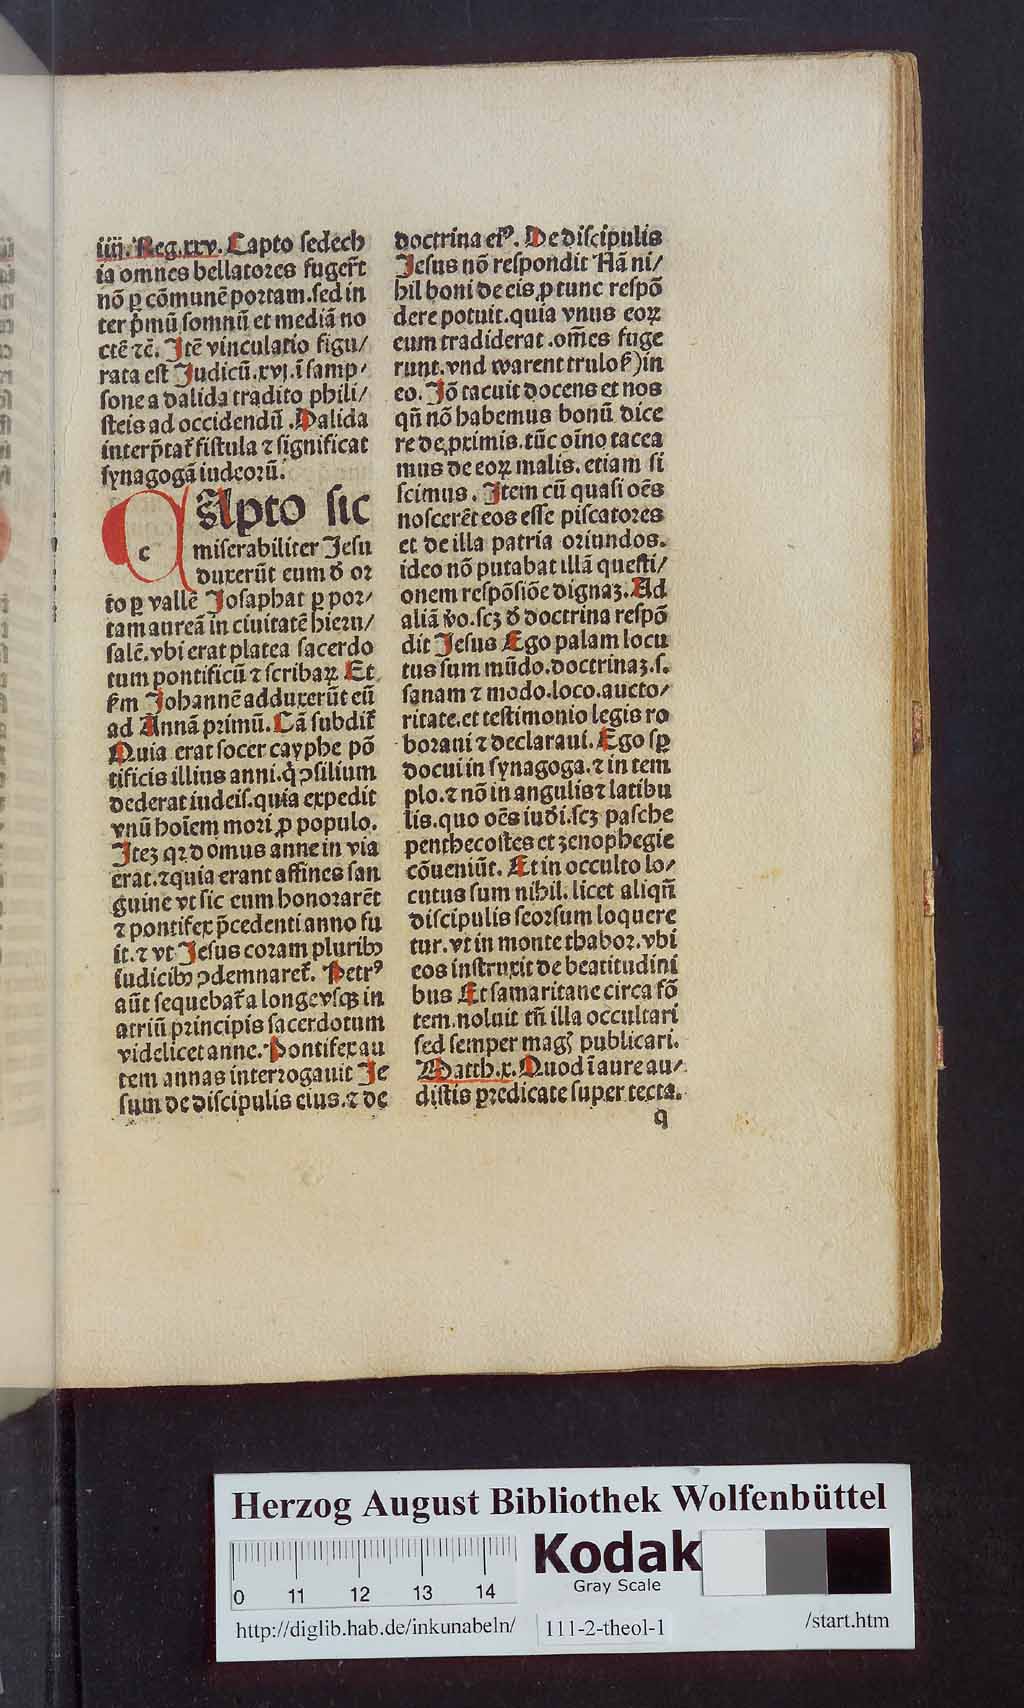 iiij. Reg.xxv. Capto sedech
ia omnes bellatores fuger̃t
nõ ꝑ cõmunẽ portam.sed in
ter p̃mũ somnũ et mediã no
ctẽ ⁊c̃. Itẽ vinculatio figu/
rata est Judicũ.xvj.ĩ samp/
sone a dalida tradito phili/
steis ad occidendũ .Dalida
interp̃tat᷑ fistula ⁊ significat
synagogã iudeorũ.
c
Apto sic
miserabiliter Jesu
duxerũt eum ð or
to ꝑ vallẽ Josaphat ꝑ por/
tam aureã in ciuitatẽ hieru/
salẽ.vbi erat platea sacerdo
tum pontificũ ⁊ scribaꝝ Et
km Johannẽ adduxerũt eũ
ad Annã primũ. Cã subdit᷑
Quia erat socer cayphe põ
tificis illius anni.q̇ ꝯsilium
dederat iudeis.quia expedit
vnũ hoĩem mori ꝓ populo.
Iteꝫ qꝛ domus anne in via
erat.⁊quia erant affines san
guine vt sic eum honorarẽt
⁊ pontifex p̃cedenti anno fu
it.⁊ vt Jesus coram pluribꝰ
iudicibꝰ ꝯdemnaret᷑. Petrꝰ
aũt sequebat᷑ a longe vsqꝫ in
atriũ principis sacerdotum
videlicet anne. Pontifex au
tem annas interrogauit Je
sum de discipulis eius.⁊ de
doctrina eiꝰ. De discipulis
Jesus nõ respondit Nã ni/
hil boni de eis ꝓ tunc respõ
dere potuit.quia vnus eoꝝ
eum tradiderat .oẽs fuge
runt.vnd warent trulok)in
eo. Jõ tacuit docens et nos
qñ nõ habemus bonũ dice
re de ꝓximis.tũc oĩno tacea
mus de eoꝝ malis. etiam si
scimus. Item cũ quasi oẽs
noscerẽt eos esse piscatores
et de illa patria oriundos.
ideo nõ putabat illã questi/
onem respõsiõe dignaꝫ. Ad
aliã ṽo.scꝫ ð doctrina respõ
dit Jesus Ego palam locu
tus sum mũdo.doctrinaꝫ.s.
sanam ⁊ modo.loco.aucto/
ritate.et testimonio legis ro
borani ⁊ declaraui. Ego sꝑ
docui in synagoga.⁊ in tem
plo.⁊ nõ in angulis⁊ latibu
lis.quo oẽs iuði.scꝫ pasche
penthecostes et zenophegie
cõueniũt. Et in occulto lo/
cutus sum nihil. licet aliqñ
discipulis seorsum loquere
tur.vt in monte thabor.vbi
eos instruxit de beatitudini
bus Et samaritane circa fõ
tem.noluit tñ illa occultari
sed semper mag̃ publicari.
Matth.x. Quod ĩ aure au/
distis predicate super tecta.
q
Herzog August Bibliothek Wolfenbüttel
0 11 12 13 14
Kodak
Gray Scale
http://diglib.hab.de/inkunabeln/ 111-2-theol-1 /start.htm